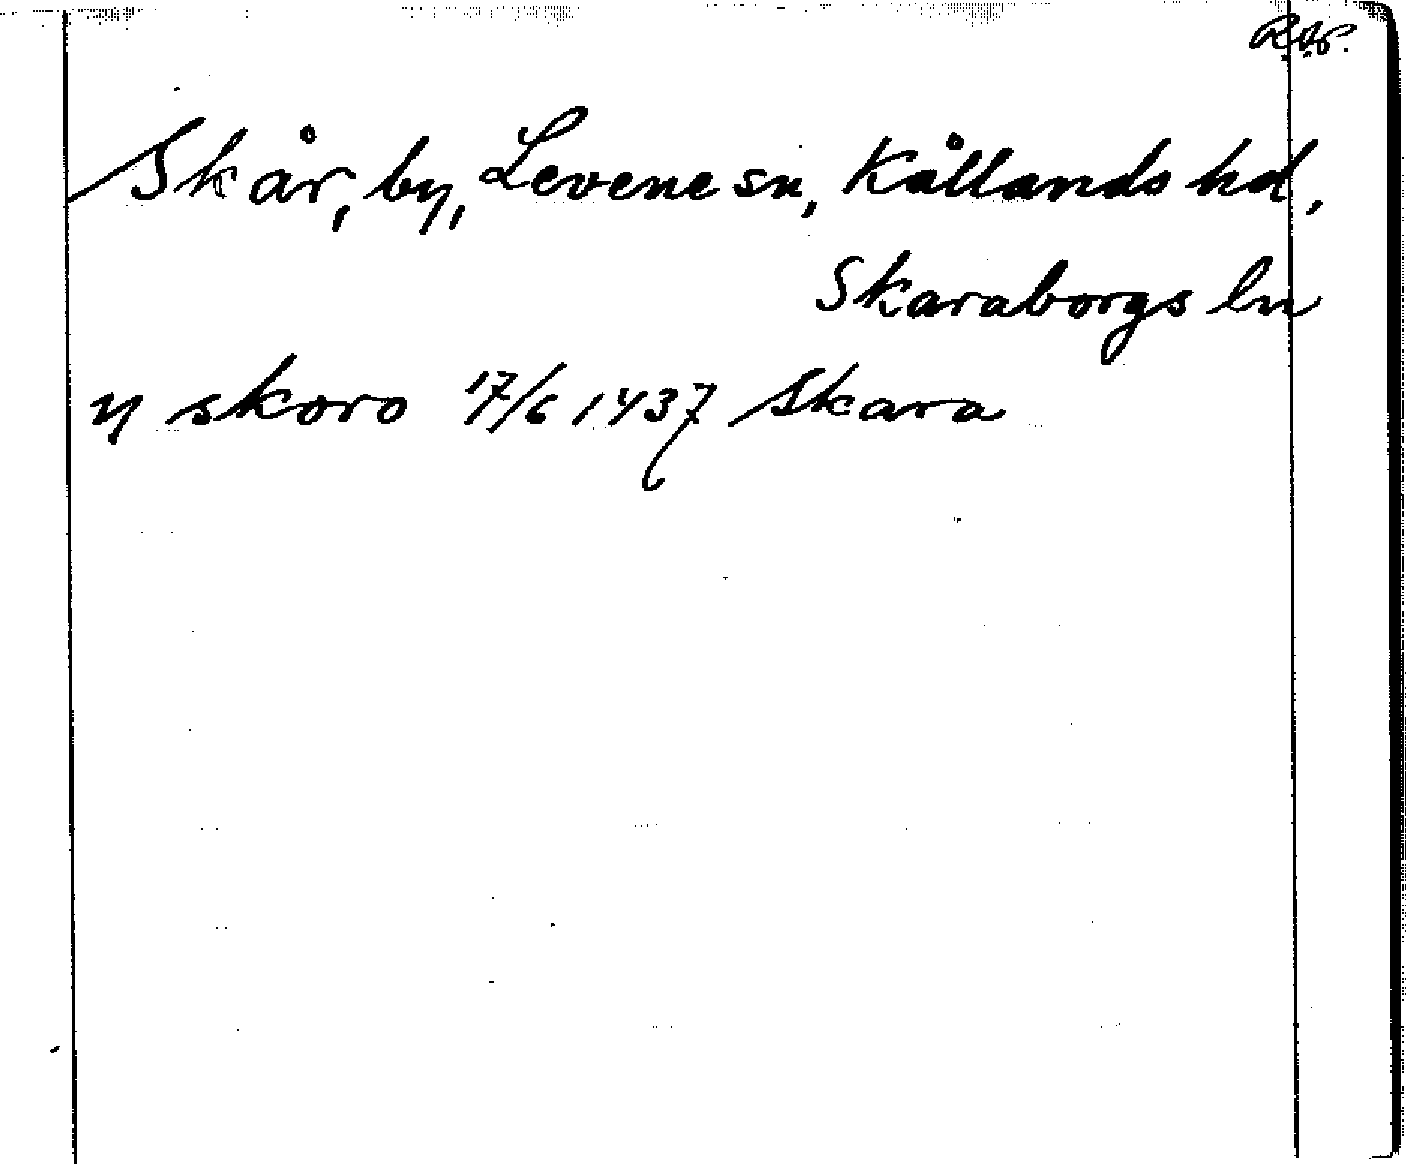 R.A.P.
Skår, by, Levene sn, Kållands hd,
Skaraborgs ln
y skoro 17/6 1437 Skara